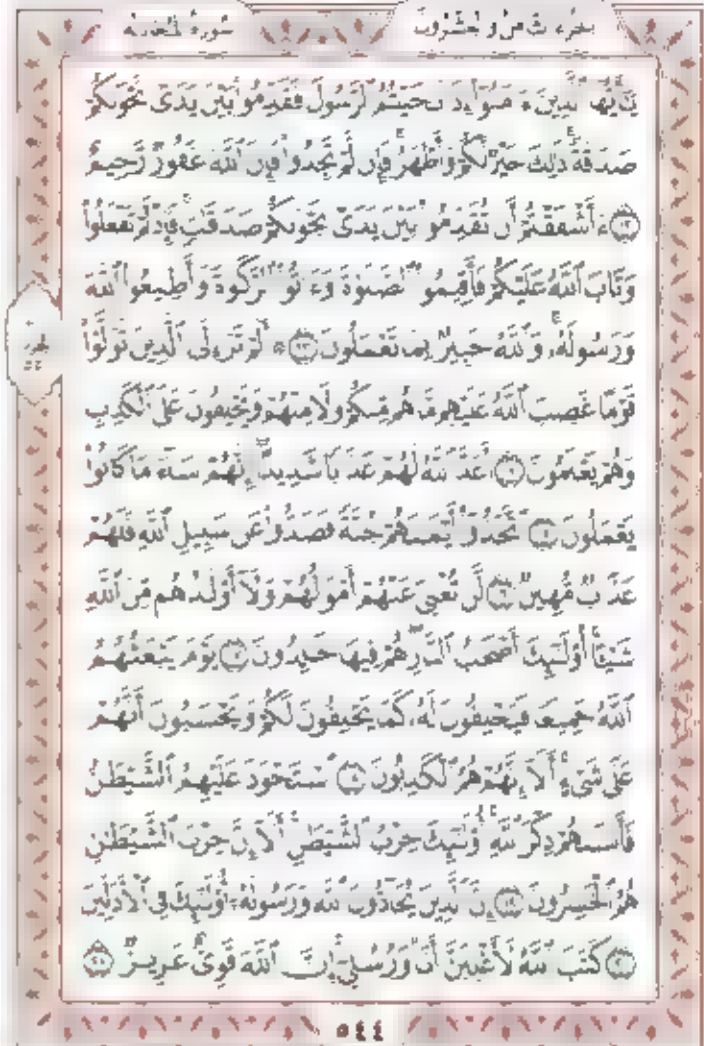 الجزء الثامن والعشرون سورة المجادلة
يَٰٓأَيُّهَا ٱلَّذِينَ ءَامَنُوٓا۟ إِذَا نَٰجَيْتُمُ ٱلرَّسُولَ فَقَدِّمُوا۟ بَيْنَ يَدَىْ نَجْوَىٰكُمْ
صَدَقَةً ۚ ذَٰلِكَ خَيْرٌ لَّكُمْ وَأَطْهَرُ ۚ فَإِن لَّمْ تَجِدُوا۟ فَإِنَّ ٱللَّهَ غَفُورٌ رَّحِيمٌ
١٢ ءَأَشْفَقْتُمْ أَن تُقَدِّمُوا۟ بَيْنَ يَدَىْ نَجْوَىٰكُمْ صَدَقَٰتٍ ۚ فَإِذْ لَمْ تَفْعَلُوا۟
وَتَابَ ٱللَّهُ عَلَيْكُمْ فَأَقِيمُوا۟ ٱلصَّلَوٰةَ وَءَاتُوا۟ ٱلزَّكَوٰةَ وَأَطِيعُوا۟ ٱللَّهَ
وَرَسُولَهُۥ ۚ وَٱللَّهُ خَبِيرٌۢ بِمَا تَعْمَلُونَ ١٣ ۞ أَلَمْ تَرَ إِلَى ٱلَّذِينَ تَوَلَّوْا۟
قَوْمًا غَضِبَ ٱللَّهُ عَلَيْهِم مَّا هُم مِّنكُمْ وَلَا مِنْهُمْ وَيَحْلِفُونَ عَلَى ٱلْكَذِبِ
وَهُمْ يَعْلَمُونَ ١٤ أَعَدَّ ٱللَّهُ لَهُمْ عَذَابًا شَدِيدًا ۖ إِنَّهُمْ سَآءَ مَا كَانُوا۟
يَعْمَلُونَ ١٥ ٱتَّخَذُوٓا۟ أَيْمَٰنَهُمْ جُنَّةً فَصَدُّوا۟ عَن سَبِيلِ ٱللَّهِ فَلَهُمْ
عَذَابٌ مُّهِينٌ ١٦ لَّن تُغْنِىَ عَنْهُمْ أَمْوَٰلُهُمْ وَلَآ أَوْلَٰدُهُم مِّنَ ٱللَّهِ
شَيْـًٔا ۚ أُو۟لَٰٓئِكَ أَصْحَٰبُ ٱلنَّارِ ۖ هُمْ فِيهَا خَٰلِدُونَ ١٧ يَوْمَ يَبْعَثُهُمُ
ٱللَّهُ جَمِيعًا فَيَحْلِفُونَ لَهُۥ كَمَا يَحْلِفُونَ لَكُمْ ۖ وَيَحْسَبُونَ أَنَّهُمْ
عَلَىٰ شَىْءٍ ۚ أَلَآ إِنَّهُمْ هُمُ ٱلْكَٰذِبُونَ ١٨ ٱسْتَحْوَذَ عَلَيْهِمُ ٱلشَّيْطَٰنُ
فَأَنسَىٰهُمْ ذِكْرَ ٱللَّهِ ۚ أُو۟لَٰٓئِكَ حِزْبُ ٱلشَّيْطَٰنِ ۚ أَلَآ إِنَّ حِزْبَ ٱلشَّيْطَٰنِ
هُمُ ٱلْخَٰسِرُونَ ١٩ إِنَّ ٱلَّذِينَ يُحَآدُّونَ ٱللَّهَ وَرَسُولَهُۥٓ أُو۟لَٰٓئِكَ فِى ٱلْأَذَلِّينَ
٢٠ كَتَبَ ٱللَّهُ لَأَغْلِبَنَّ أَنَا۠ وَرُسُلِىٓ ۚ إِنَّ ٱللَّهَ قَوِىٌّ عَزِيزٌ ٢١
٥٤٤